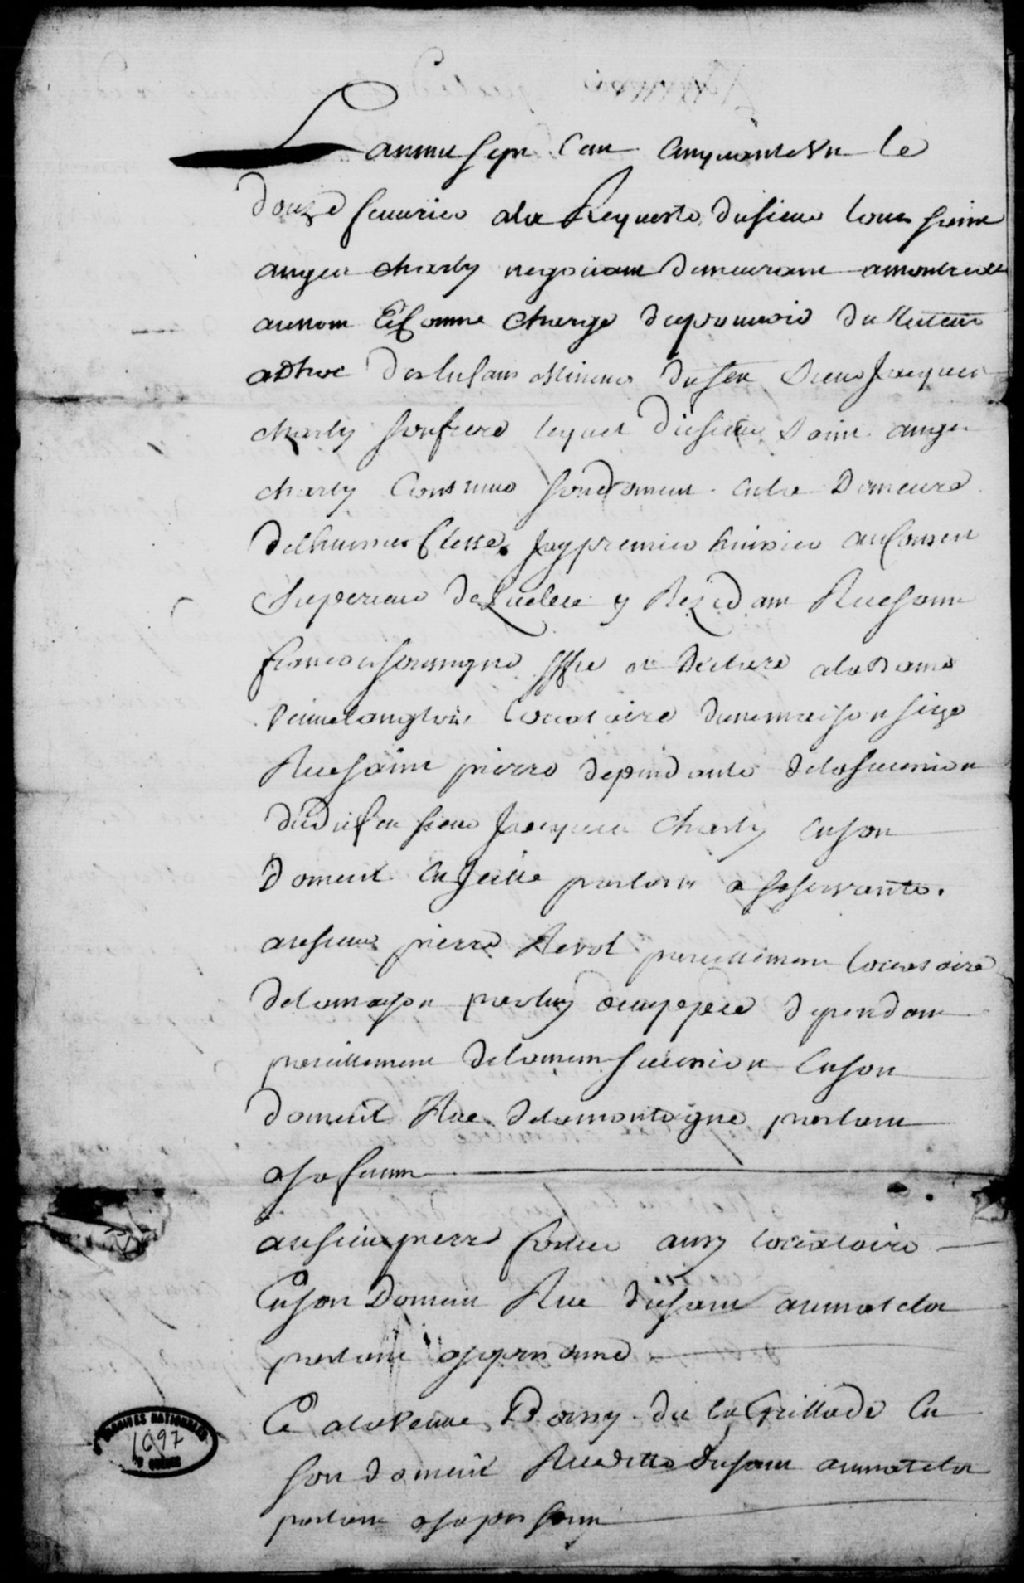 Lanmil sept Cent Cinquante Un le
douze feuvrier ala Requeste du sieur Louis saint
ange charly negociant demeurant amontreal
aunom Et Comme chargé depouvoir du tuteur
adhoc des Enfans Mineurs du feu sieur Jacques
charly son frere lequel dit sieur saint ange
charly Continue son domicile En la Demeure
De lhuissier Clesse, Jay premier huissier au Conseil
Superieur de Quebec y Rezidant Rue saint
francois soussigné, signifié et declaré a la dame
Veuve langlois Locataire dune maison size
Rue saint pierre dependante de la succession
dudit feu sieur Jacques Charly En son
domicil En ville parlant a sa servante.
au sieur pierre Revol pareillement locataire
dela maison par luy occuppée dependant
pareillement de la meme succession En son
domicil Rue delamontagne parlant
a sa femme
au sieur pierre fortier aussy locataire
En son Domicil Rue du saut aumatelot
parlant a sa personne
Et a la Veuve Boissy dit la Grillade En
son domicil Rue ditte du saut aumatelot
parlant a sa personne
ARCHIVES NATIONALES
1097
QUEBEC